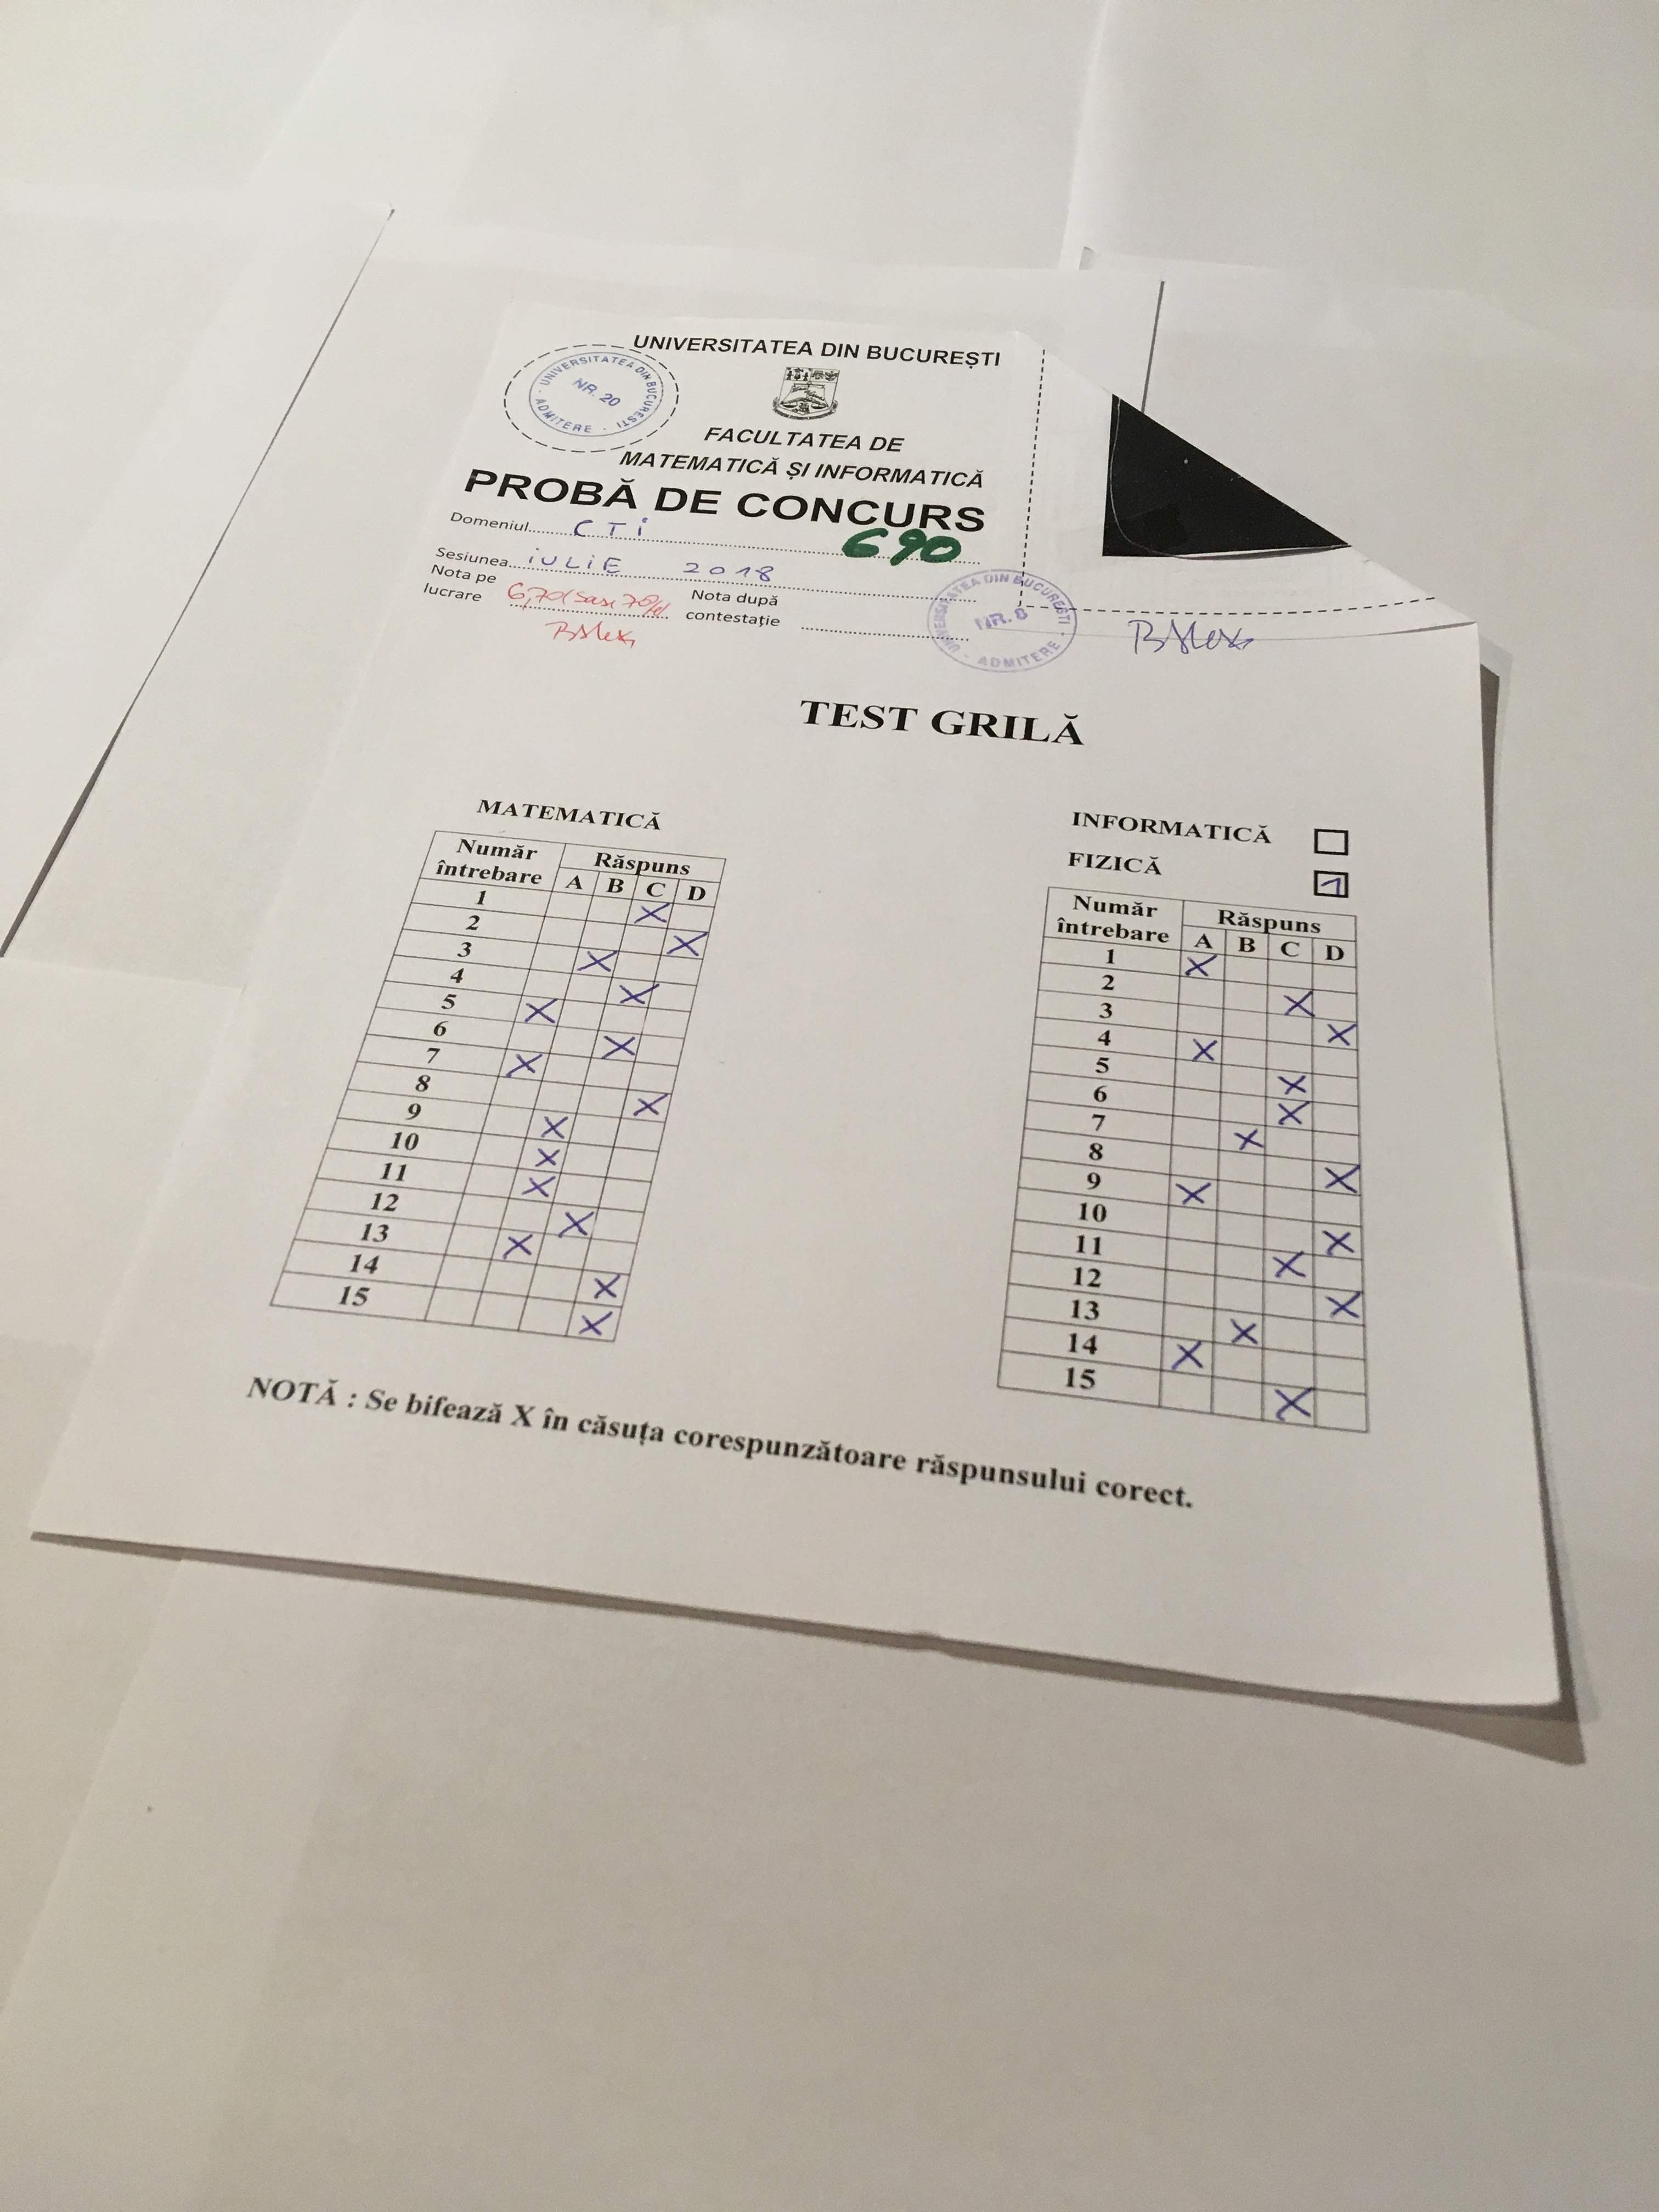 UNIVERSITATEA DIN BUCUREȘTI
UNIVERSITATEA DIN BUCUREȘTI · ADMITERE ·
NR. 20
FACULTATEA DE
MATEMATICĂ ȘI INFORMATICĂ
PROBĂ DE CONCURS
Domeniul CTi
690
Sesiunea iULiE 2018
Nota pe
lucrare 6,70
Nota după
contestație
UNIVERSITATEA DIN BUCUREȘTI · ADMITERE ·
NR. 8
TEST GRILĂ
MATEMATICĂ
Număr întrebare Răspuns
A B C D
1 X
2 X
3 X
4 X
5 X
6 X
7 X
8 X
9 X
10 X
11 X
12 X
13 X
14 X
15 X
INFORMATICĂ
FIZICĂ 1
Număr întrebare Răspuns
A B C D
1 X
2 X
3 X
4 X
5 X
6 X
7 X
8 X
9 X
10 X
11 X
12 X
13 X
14 X
15 X
NOTĂ : Se bifează X în căsuța corespunzătoare răspunsului corect.